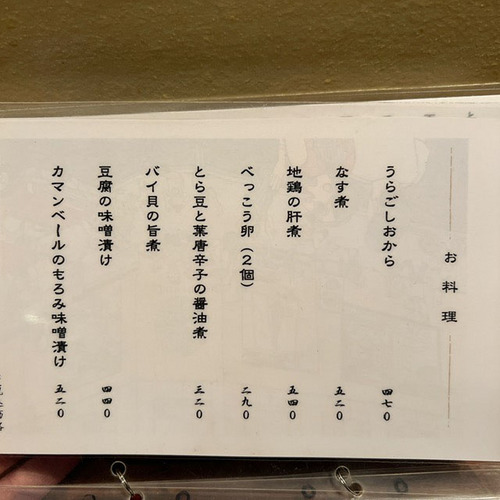 お料理
うらごしおから 四七〇
なす煮 五二〇
地鶏の肝煮 五四〇
べっこう卵（２個） 二九〇
とら豆と葉唐辛子の醤油煮 三二〇
バイ貝の旨煮
豆腐の味噌漬け 四四〇
カマンベールのもろみ味噌漬け 五二〇